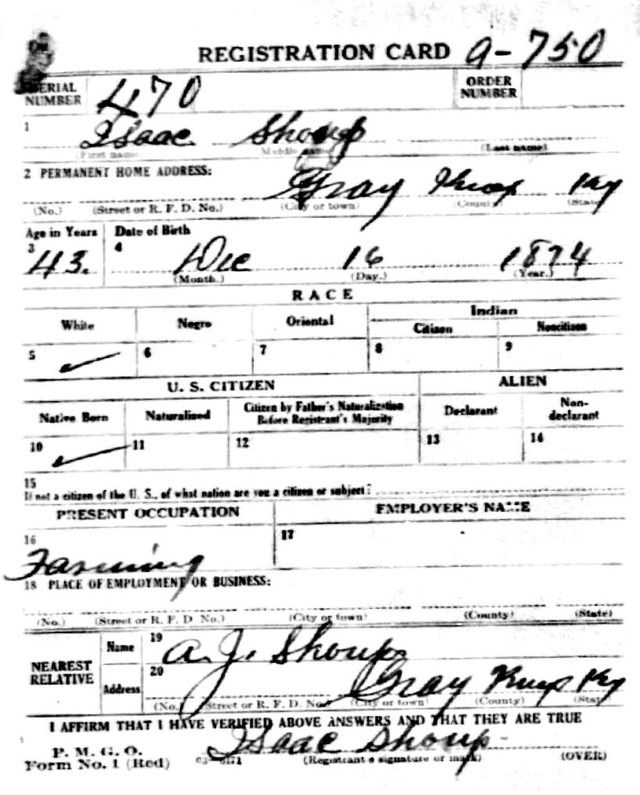 REGISTRATION CARD 9-750
SERIAL NUMBER 470 ORDER NUMBER
1 Isaac Shoup
First name Middle name (Last name)
2 PERMANENT HOME ADDRESS: Gray Knox Ky
(No.) (Street or R. F. D. No.) (City or town) (County) (State)
Age in Years Date of Birth
3 43. 4 Dec 16 1874
(Month.) (Day.) (Year.)
RACE
White Negro Oriental Indian
Citizen Noncitizen
5 ✓ 6 7 8 9
U. S. CITIZEN ALIEN
Native Born Naturalized Citizen by Father's Naturalization Before Registrant's Majority Declarant Non-declarant
10 ✓ 11 12 13 14
15
If not a citizen of the U. S., of what nation are you a citizen or subject?
PRESENT OCCUPATION EMPLOYER'S NAME
16 Farming 17
18 PLACE OF EMPLOYMENT OR BUSINESS:
(No.) (Street or R. F. D No.) (City or town) (County) (State)
NEAREST RELATIVE
Name 19 A. J. Shoup
Address 20 Gray Knox Ky
(No.) (Street or R. F. D. No.) (City or town) (County) (State)
I AFFIRM THAT I HAVE VERIFIED ABOVE ANSWERS AND THAT THEY ARE TRUE
P. M. G. O. Isaac Shoup
Form No. 1 (Red) (Registrant's signature or mark) (OVER)